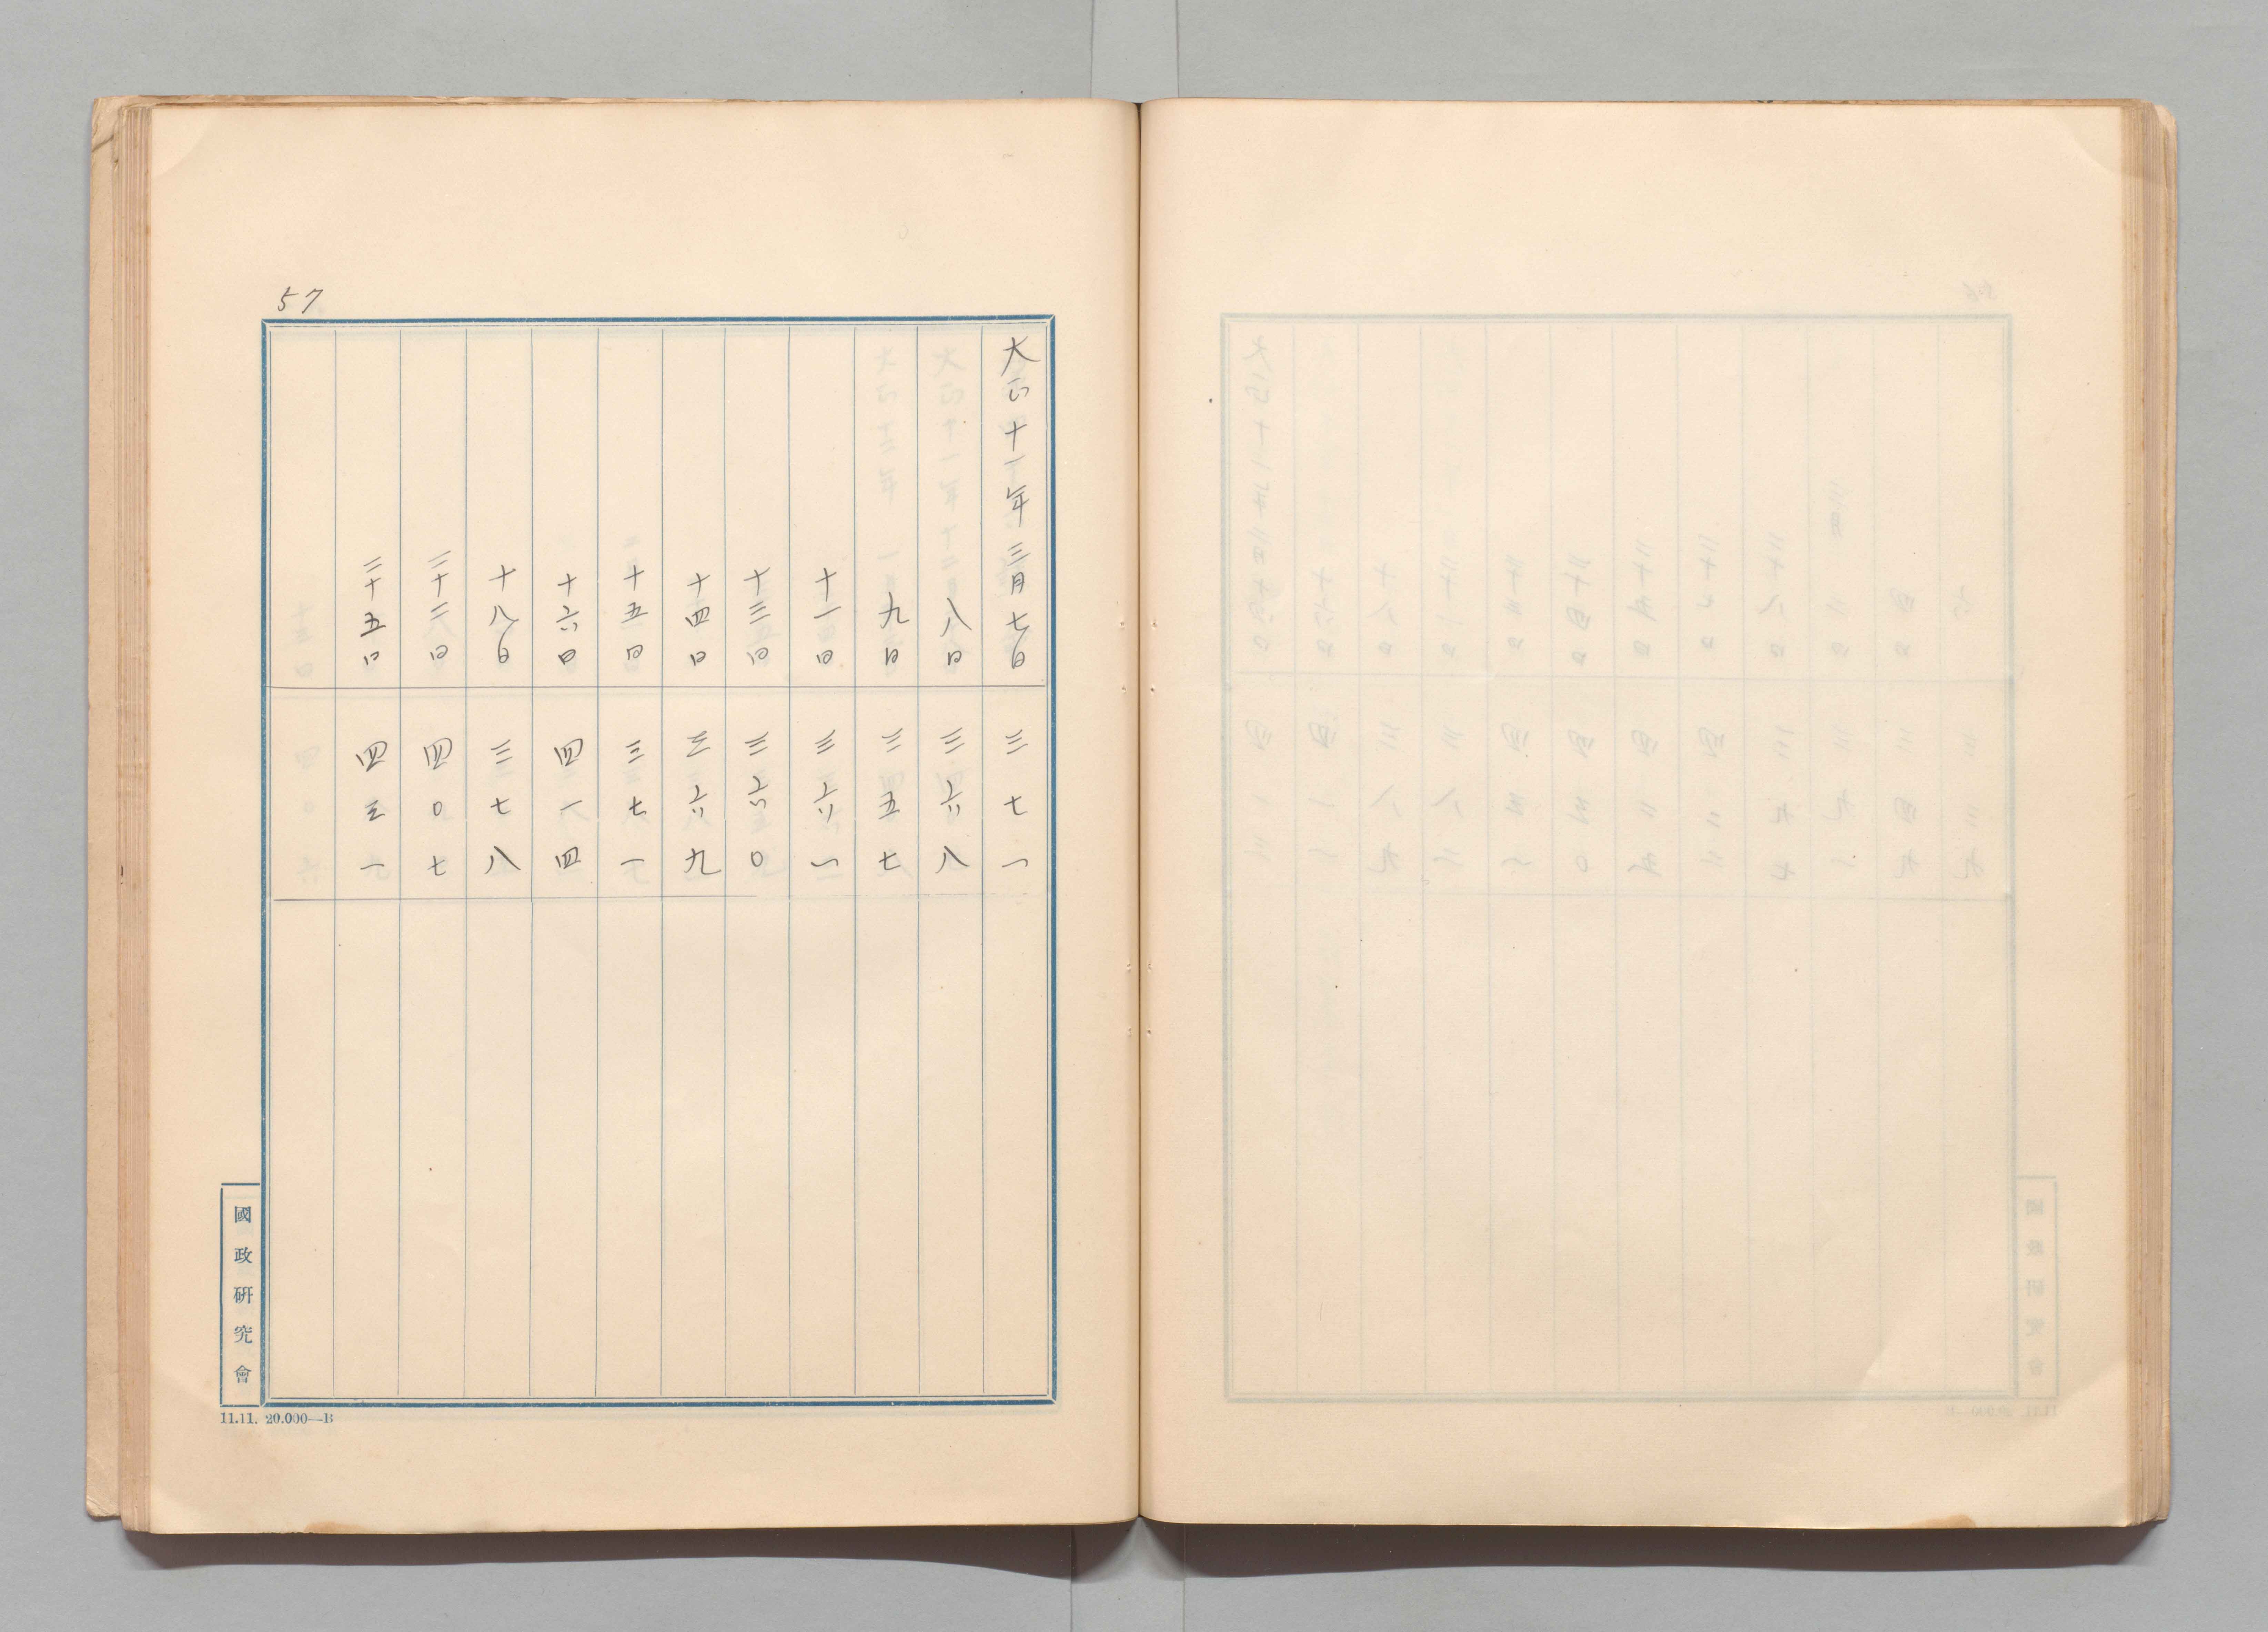 57
大正十一年三月七日 三七一
八日 三六八
九日 三五七
十一日 三六一
十三日 三六〇
十四日 三六九
十五日 三七一
十六日 四一四
十八日 三七八
二十二日 四〇七
二十五日 四三一
國政研究會
11.11. 20.000—B